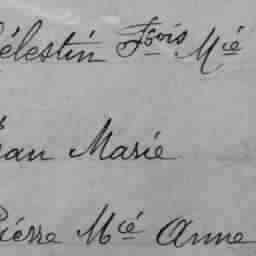 élestin Fçois Mié
ean Marie
ierre Mié Anne